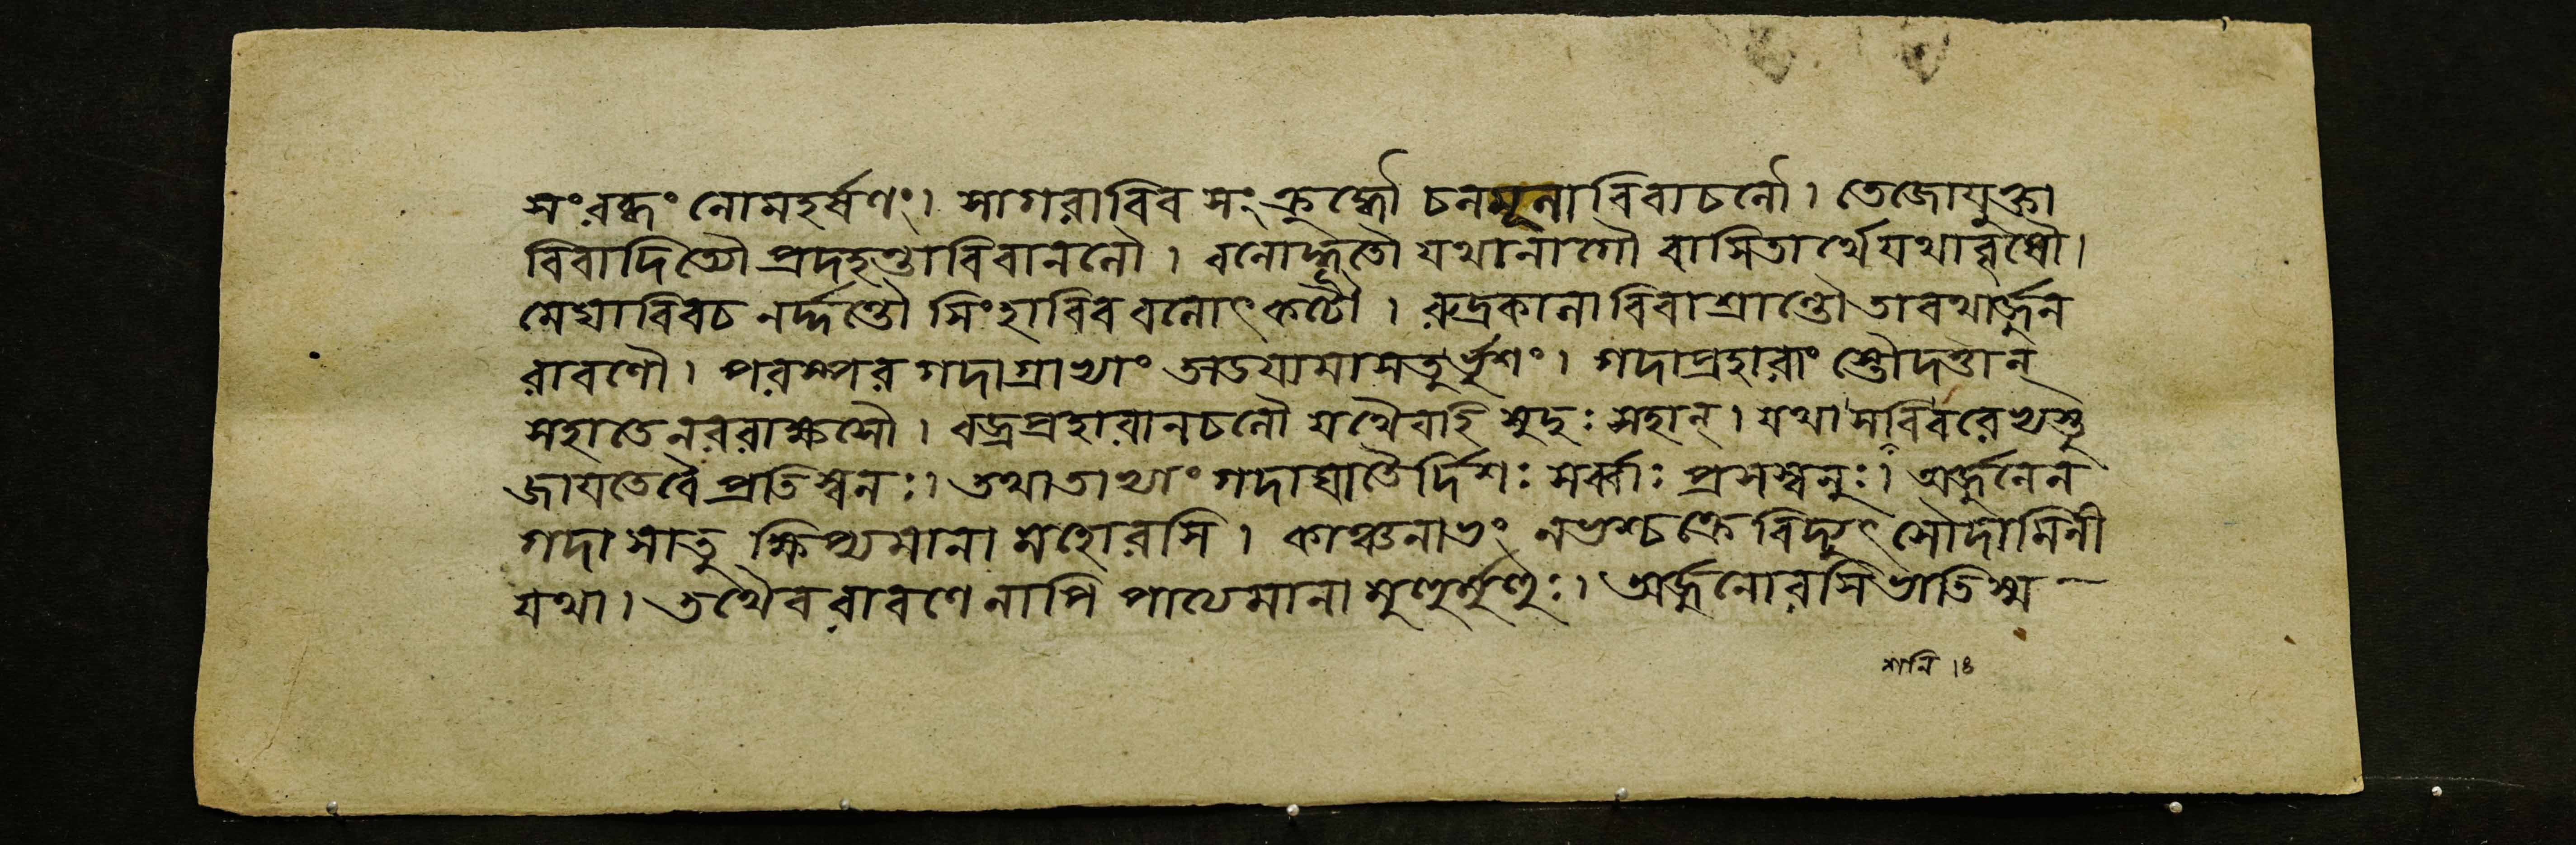 সংরব্ধং লোমহর্ষণং। সাগরাবিব সংক্রুর্দ্ধৌ চলমূলাবিবাচলৌ। তেজোযুক্তা
বিবাদিত্যৌ প্রদহন্তাবিবানলৌ। বলোদ্ধতৌ যথানাগৌ বাসিতার্থে যথাবৃষৌ।
মেঘাবিবচ নর্দ্দন্তৌ সিংহাবিব বলোৎকটৌ। রুদ্রকালাবিবাশ্রান্তৌ তাবথার্জুন
রাবণৌ। পরস্পর গদাগ্রাভ্যাং তাডযামাসতুর্ভৃশং। গদাপ্রহারাং স্তৌদত্তান্
সহাতে নররাক্ষসৌ। বজ্রপ্রহারানচলৌ যথৈবাহি সুদুঃসহান্। যথা সবিবরেভ্যস্তু
জাযতেবৈ প্রতিস্বনঃ। তথাতাভ্যাং গদাঘাতৈর্দিশঃ সর্ব্বাঃ প্রসস্বনুঃ। অর্জুনেন
গদা সাতু ক্ষিপ্যমানা মহোরসি। কাঞ্চনাভং নভশ্চক্রে বিদ্যুৎ সৌদামিনী
যথা। তথৈব রাবণেনাপি পাত্যমানা মুহুর্মুহুঃ। অর্জুনোরসি ভাতিস্ম